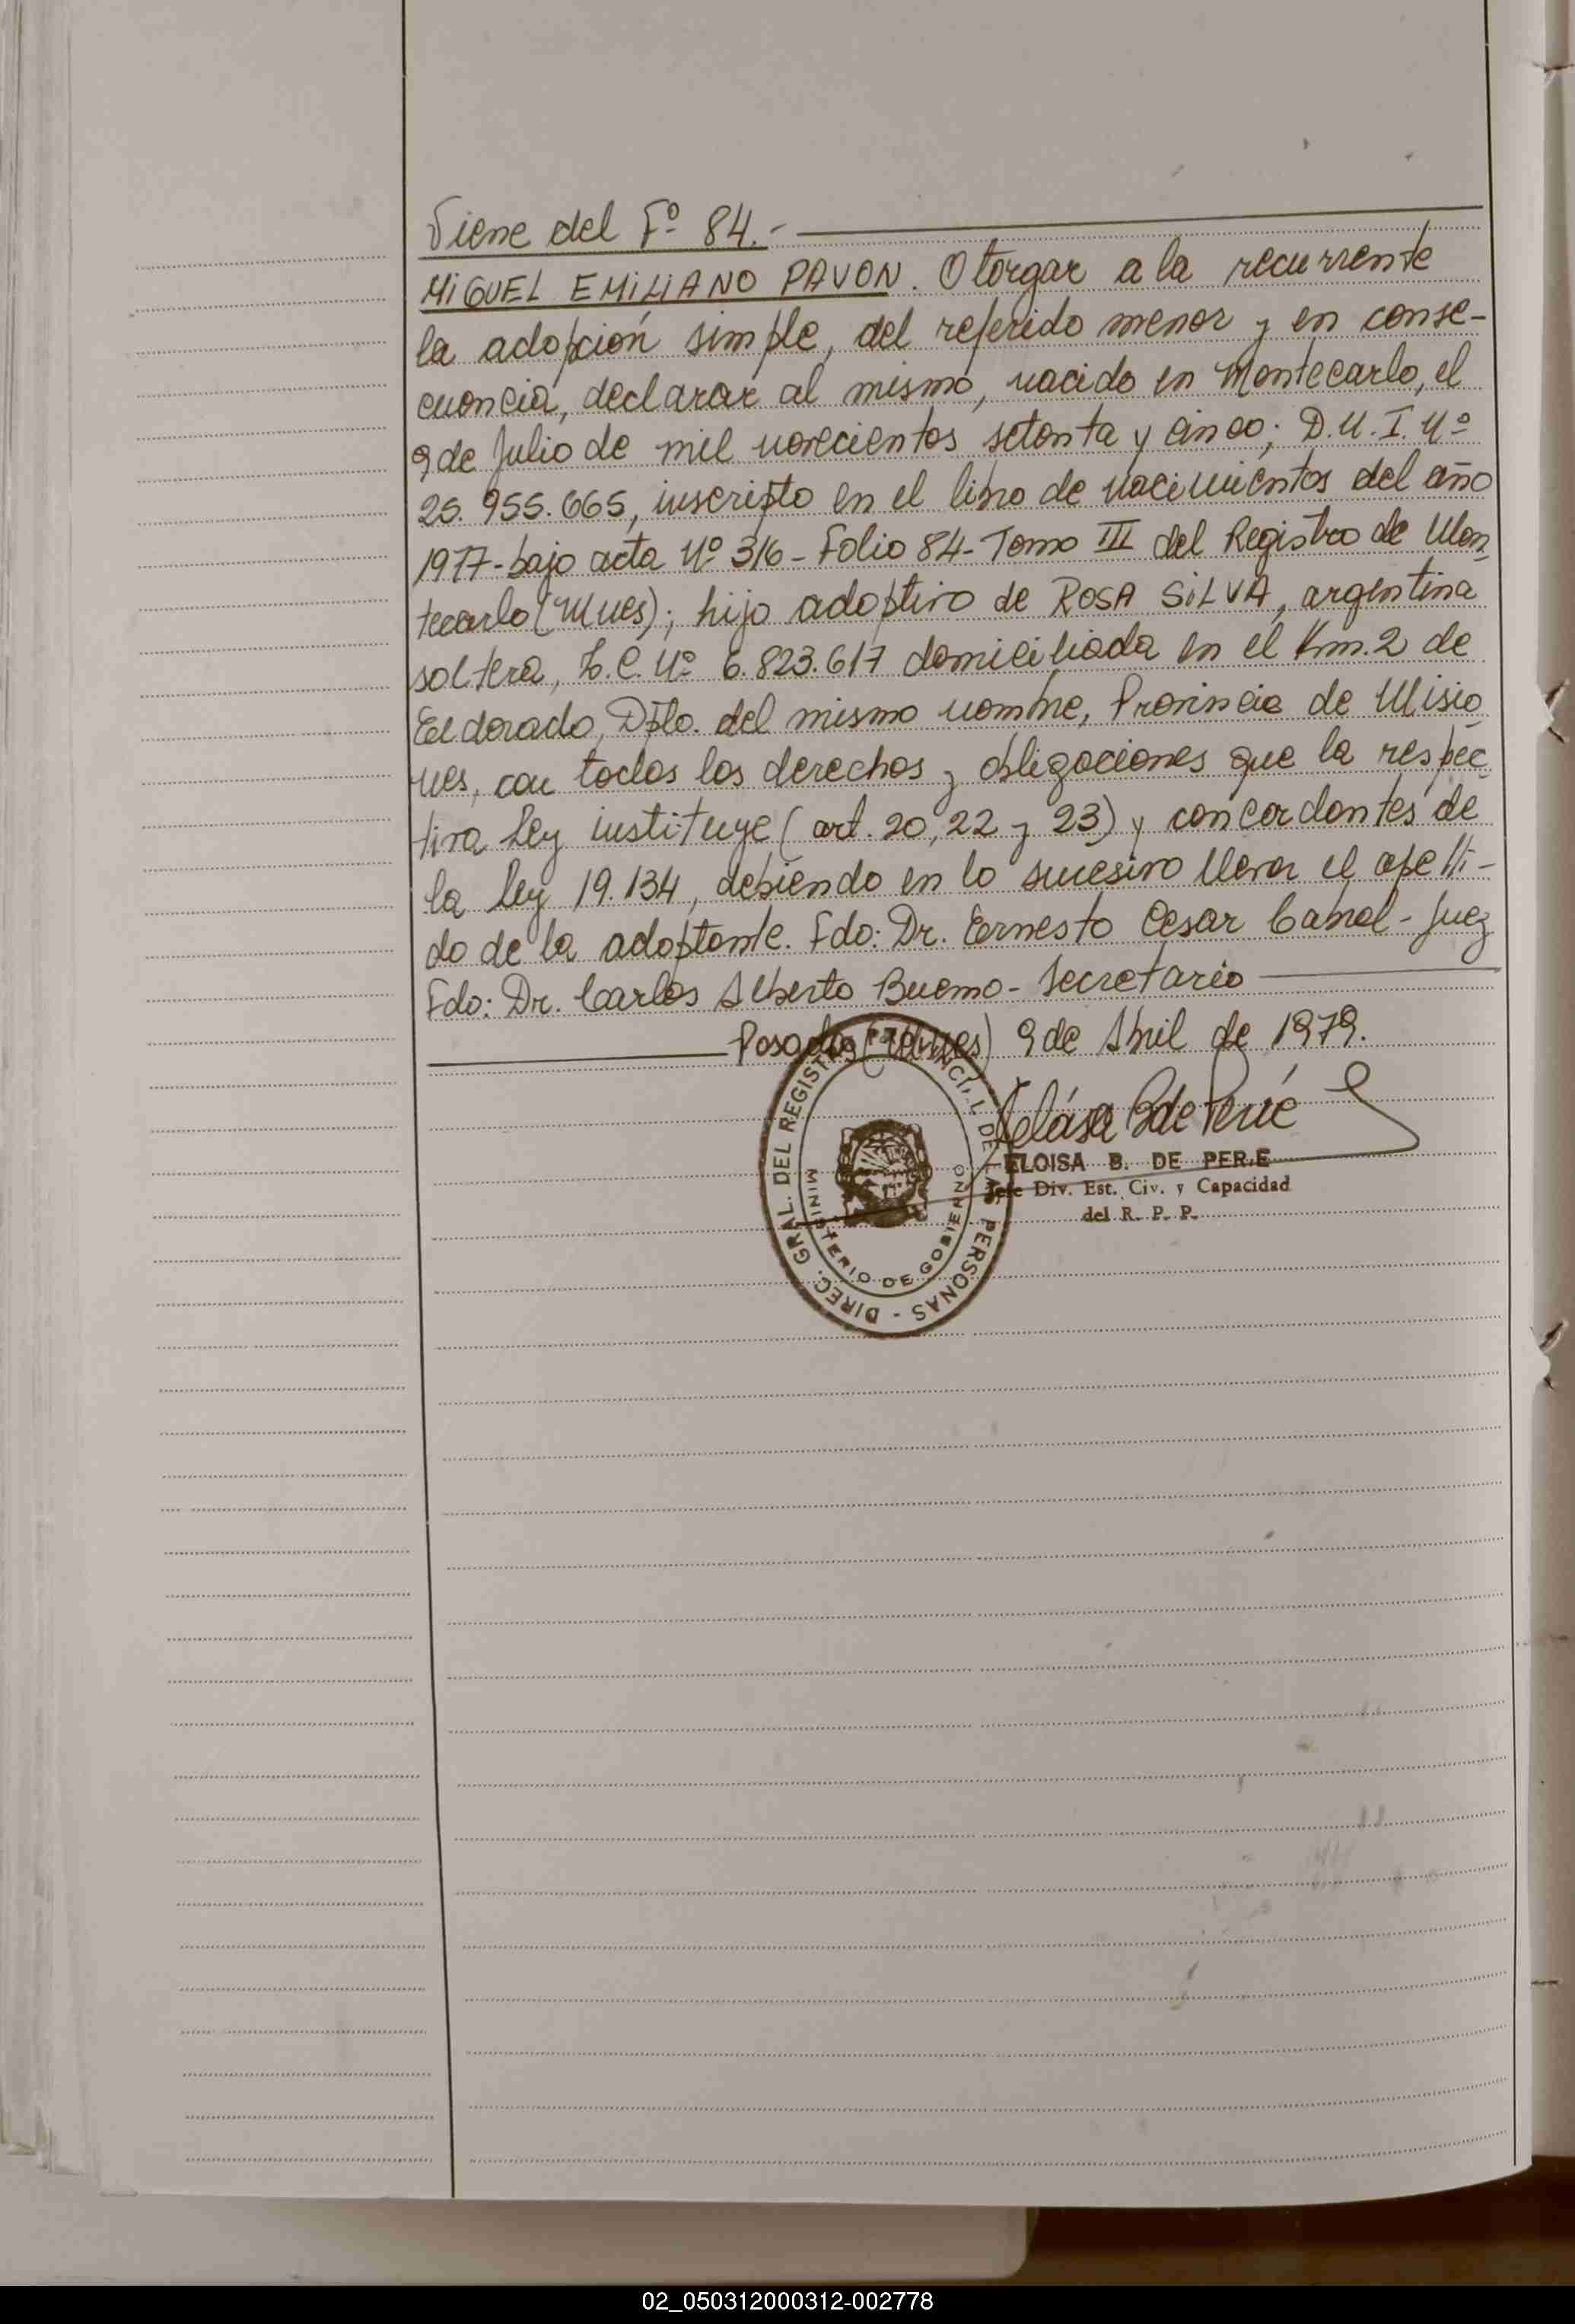 Viene del Fº 84.-
MIGUEL EMILIANO PAVON. Otorgar a la recurrente
la adopción simple, del referido menor y en conse-
cuencia, declarar al mismo, nacido en Montecarlo, el
9 de Julio de mil novecientos setenta y cinco; D.N.I. Nº
25.955.665, inscripto en el libro de nacimientos del año
1977 - bajo acta Nº 316 - Folio 84 - Tomo III del Registro de Mon-
tecarlo (Mnes); hijo adoptivo de ROSA SILVA, argentina
soltera, L.C. Nº 6.823.617 domiciliada en el Km. 2 de
Eldorado, Dpto. del mismo nombre, Provincia de Misio
nes, con todos los derechos y obligaciones que la respec
tiva Ley instituye (art. 20, 22 y 23) y concordantes de
la Ley 19.134, debiendo en lo sucesivo llevar el apelli-
do de la adoptante. Fdo: Dr. Ernesto Cesar Cabral - Juez
Fdo: Dr. Carlos Alberto Bueno - Secretario
Posadas (Mnes) 9 de Abril de 1979.
DIREC. GRAL. DEL REGISTRO PROVINCIAL DE LAS PERSONAS -
MINISTERIO DE GOBIERNO
ELOISA B. DE PERIE
Jefe Div. Est. Civ. y Capacidad
del R. P. P.
02_050312000312-002778